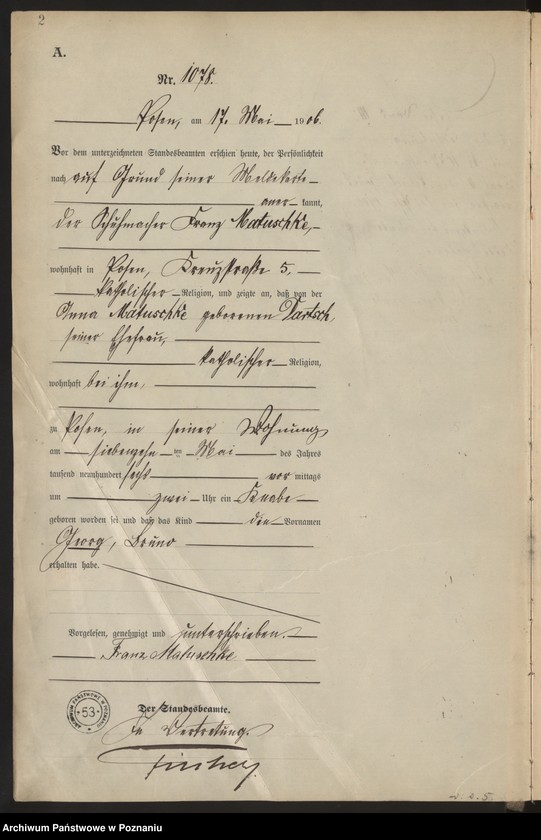 2
A.
Nr. 1078.
Posen, am 17. Mai 1906.
Vor dem unterzeichneten Standesbeamten erschien heute, der Persönlichkeit
nach auf Grund seiner Meldekarte
aner kannt,
der Schuhmacher Franz Matuschke,
wohnhaft in Posen, Kreuzstraße 5.
katholischer Religion, und zeigte an, daß von der
Anna Matuschke geborenen Dartsch,
seiner Ehefrau,
katholischer Religion,
wohnhaft bei ihm,
zu Posen, in seiner Wohnung
am siebenzehn ten Mai des Jahres
tausend neunhundert sechs vor mittags
um zwei Uhr ein Knabe
geboren worden sei und daß das Kind die Vornamen
Georg, Bruno
erhalten habe.
Vorgelesen, genehmigt und unterschrieben.
Franz Matuschke
Der Standesbeamte.
In Vertretung.
ARCHIWUM PAŃSTWOWE W POZNANIU
53
Archiwum Państwowe w Poznaniu